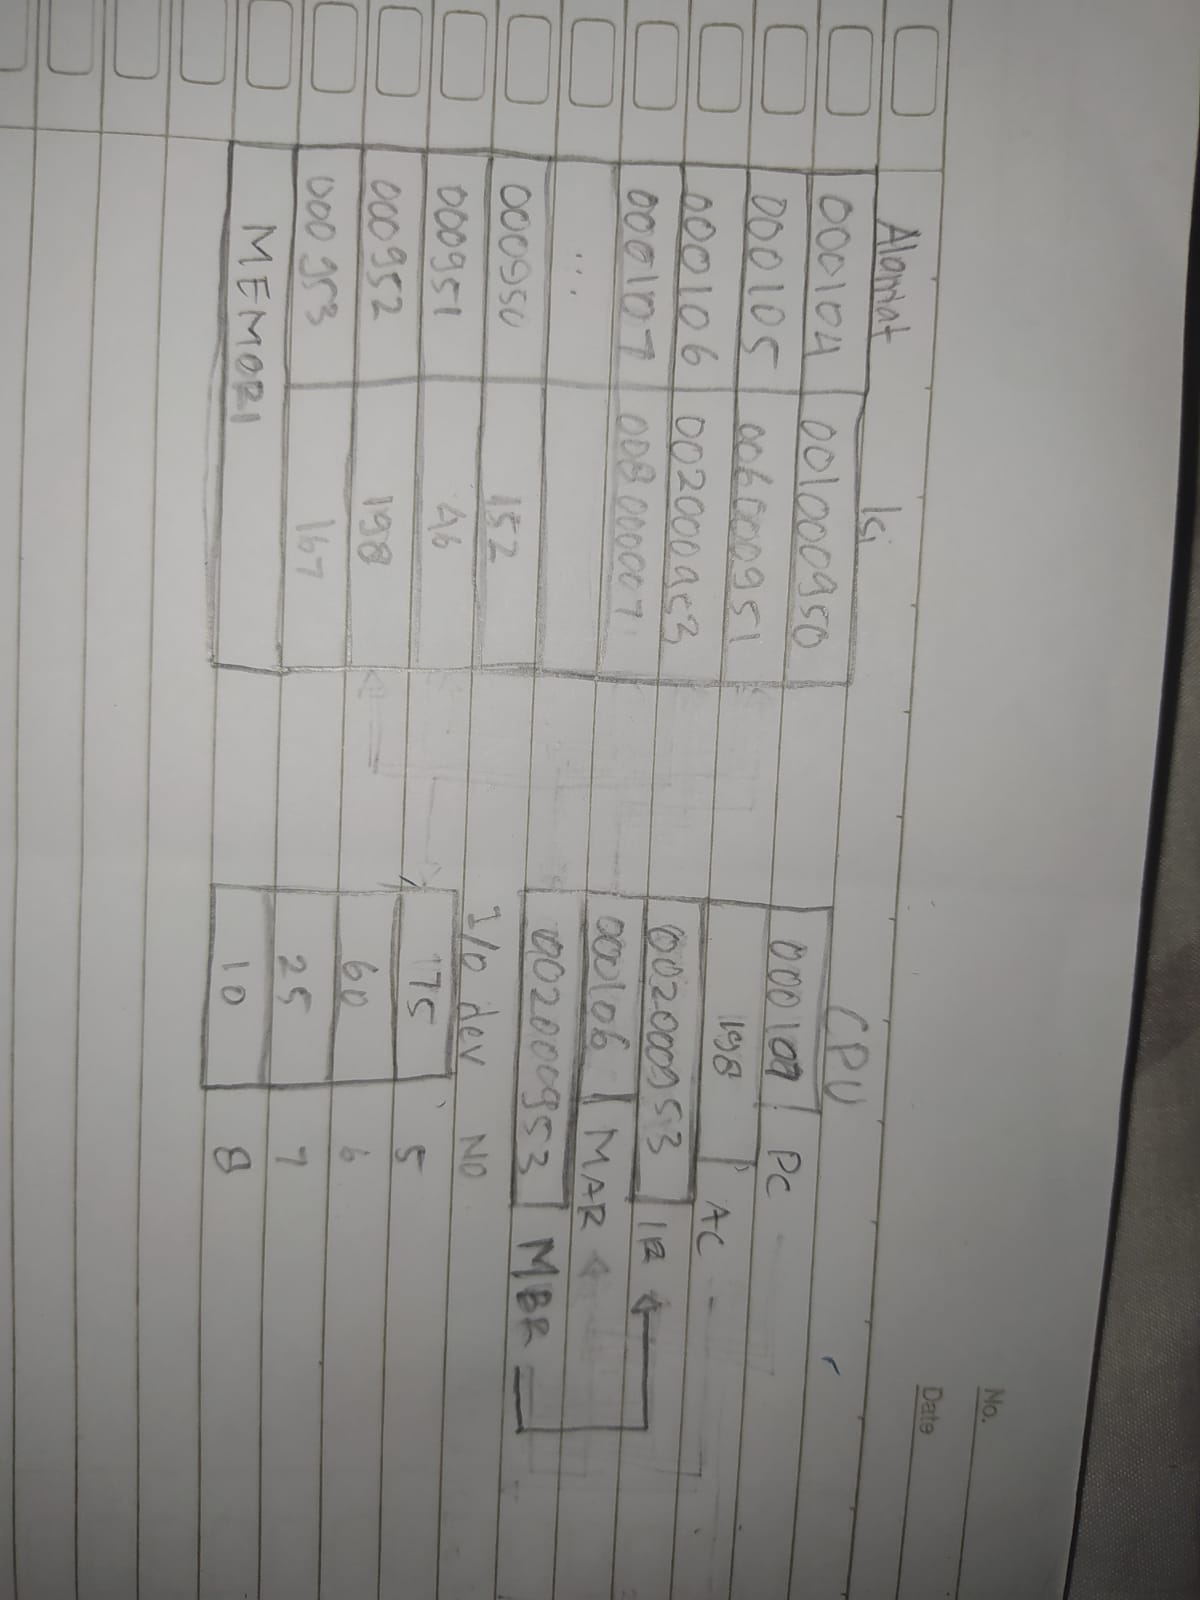 No.
Date
Alamat Isi
000104 001000950
000105 006000951
000106 002000953
000107 008000007
...
000950 152
000951 46
000952 198
000953 167
MEMORI
CPU
PC
198 AC
002000953 IR
000106 MAR
002000953 MBR
I/O dev NO
175 5
60 6
25 7
10 8